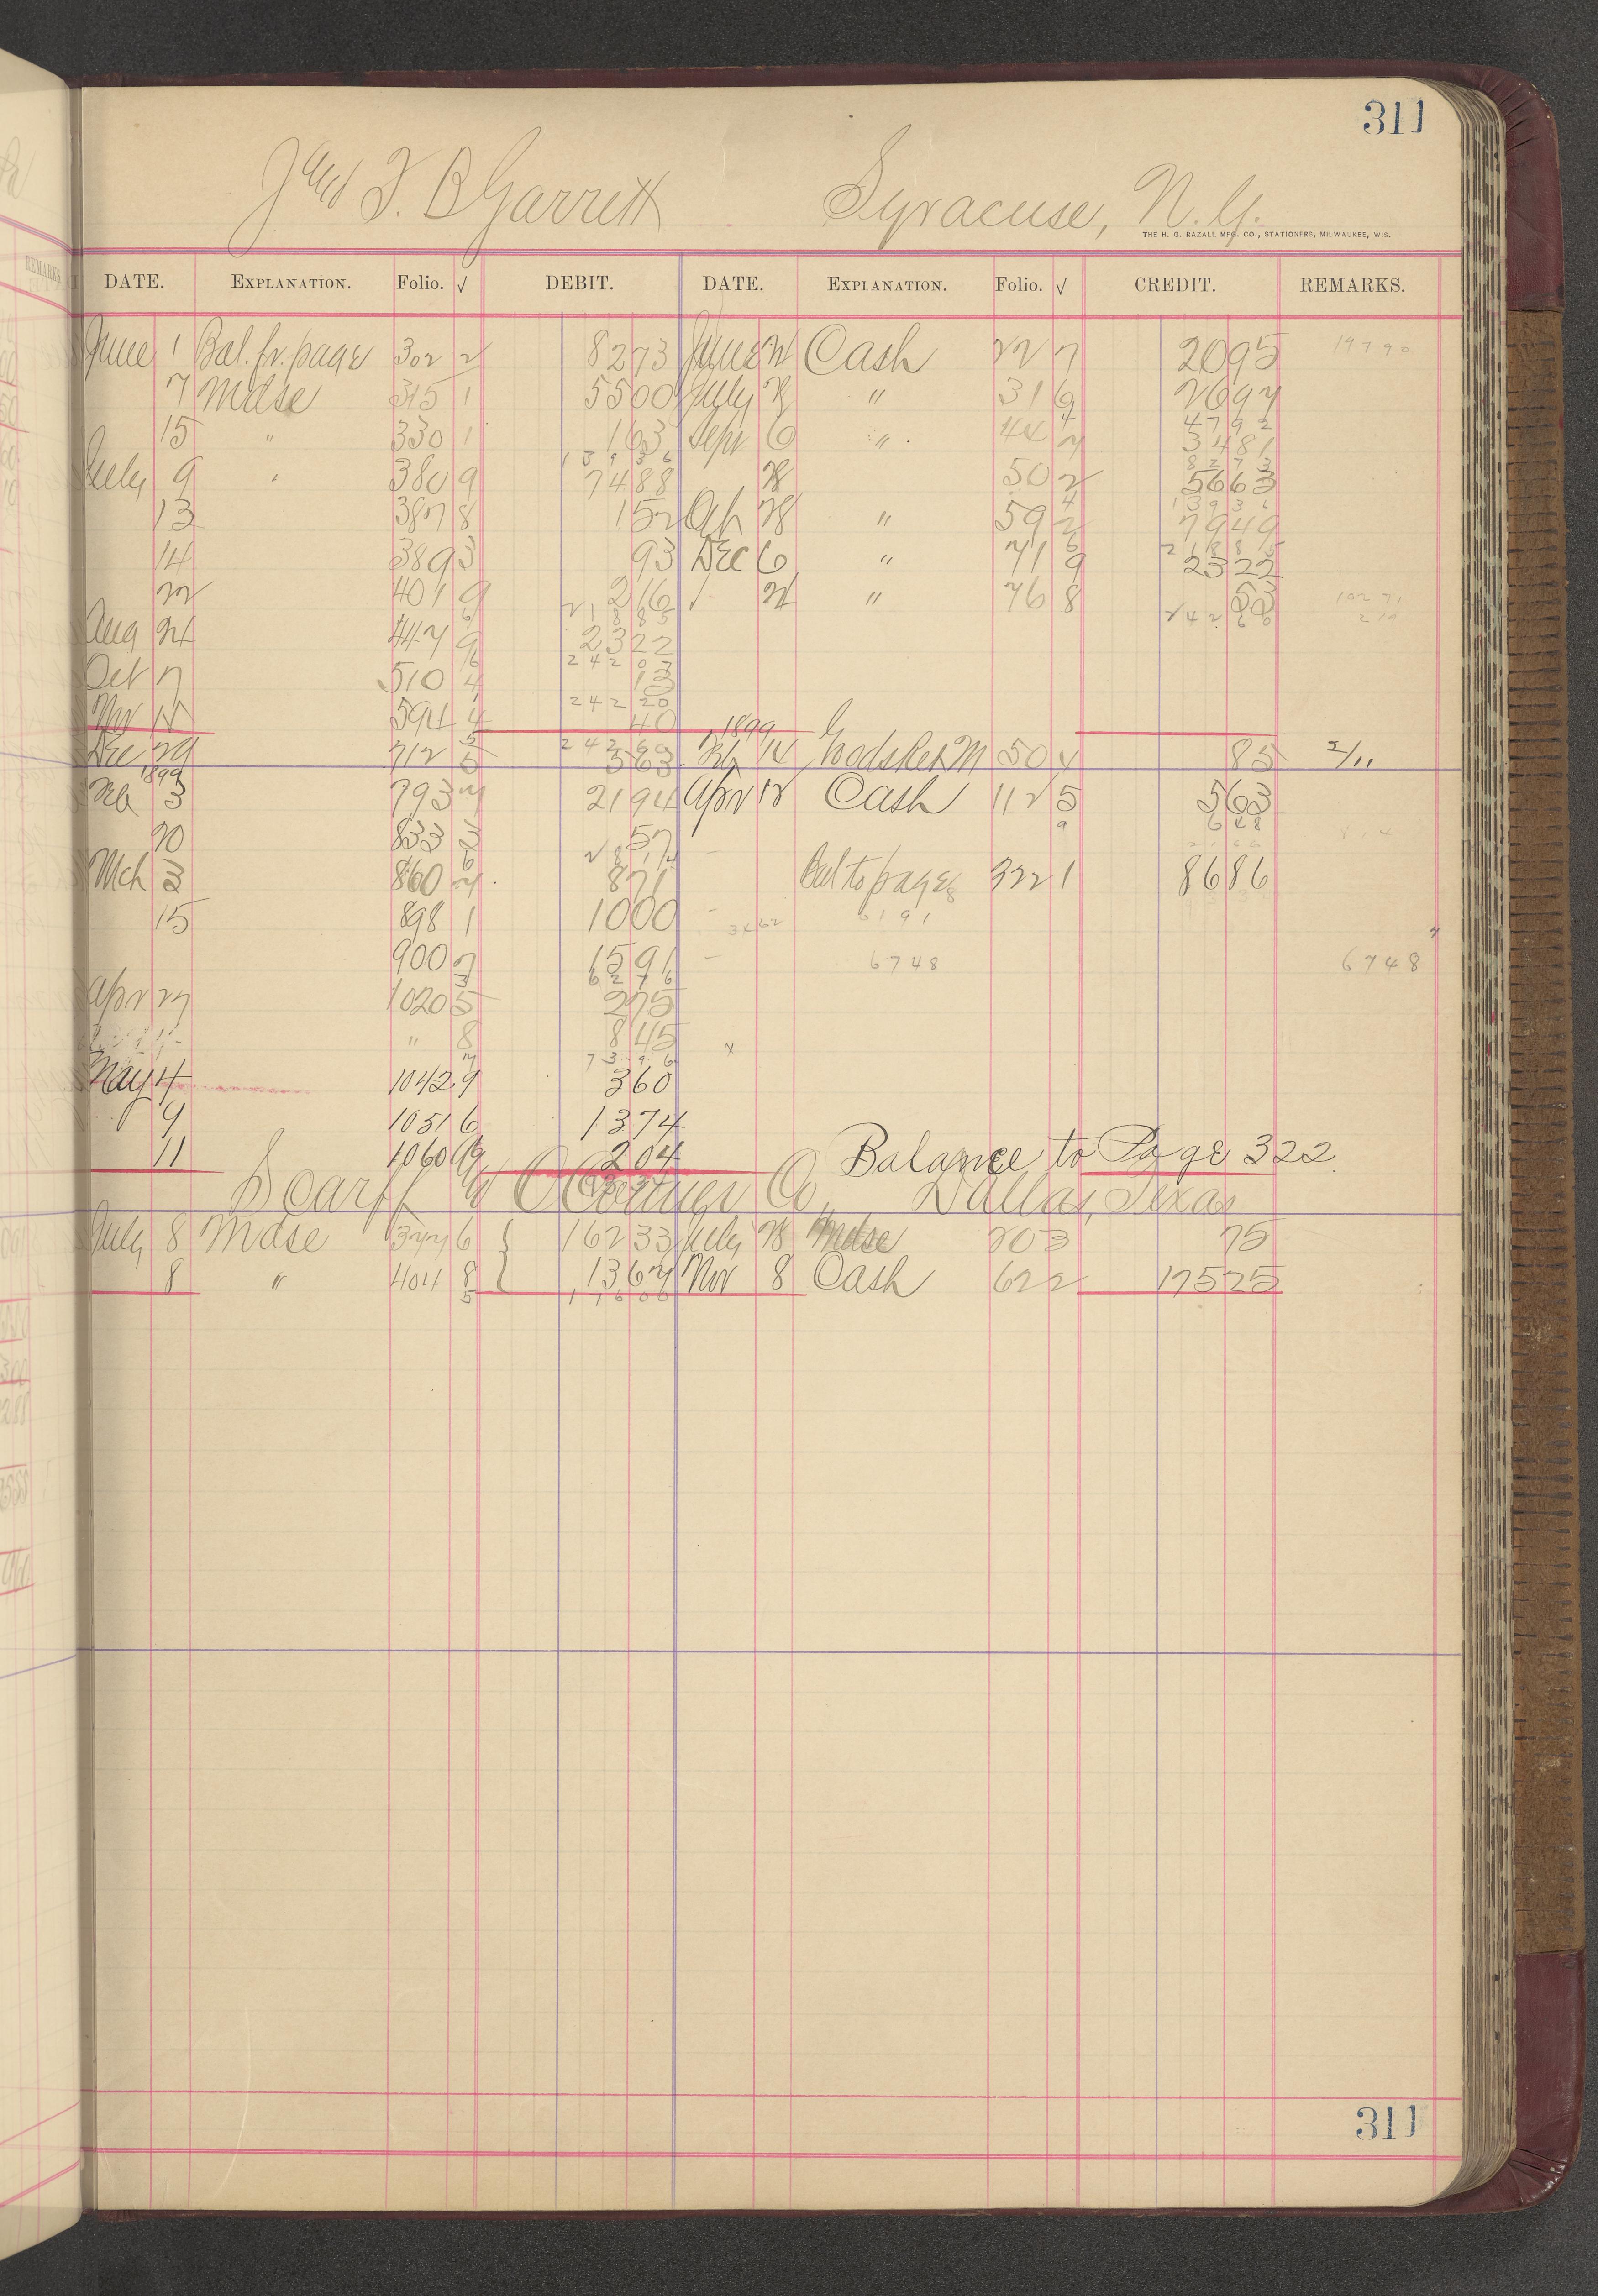 311
T. B Garrett Syracuse, N.Y.
THE H. G. RAZALL MFG. CO., STATIONERS, MILWAUKEE, WIS.
DATE. EXPLANATION. Folio. √ DEBIT. DATE. EXPLANATION. Folio. √ CREDIT. REMARKS.
June 1 Bal. fr. page 302 2 82 73 June Cash 22 7 20 95 197 90
7 Mdse 315 1 55 00 July " 31 6 26 97
47 9 2
15 " 330 1 1 63 Sept 6 " 44 34 81
139 36 82 7 3
July 9 " 380 9 74 88 50 2 56 63
139 3 6
13 387 8 1 52 28 " 59 2 79 49
218 8 5
14 389 3 93 Dec 6 " 71 9 23 22
22 401 9 2 16 " 76 8 53
218 85 242 6 0
Aug 24 447 9 23 22
242 07
Oct 7 510 4 13
242 20
Nov 594 4 40
1899
Dec 29 712 5 5 63 Feb 14 Goods Ret M 50 85 2/11
1899
Feb 3 793 21 94 Apr 12 Cash 112 5 5 63
9 6 48
20 833 3 57
28 14
Mch 3 860 8 71 Bal to page 322 1 86 86
15 898 1 10 00 61 91
900 7 15 91 67 48 67 48
62 76
Apr 27 1020 5 2 75
" 8 8 45 x
73 9 6
May 4 1042 9 3 60
9 1051 6 13 74
11 1060 2 04 Balance to Page 322
Scarff & O'Connor Co Dallas, Texas
July 8 Mdse 377 6 162 33 July 28 Mdse 203 75
8 " 404 8 13 67 Nov 8 Cash 622 175 25
5 176 00
311